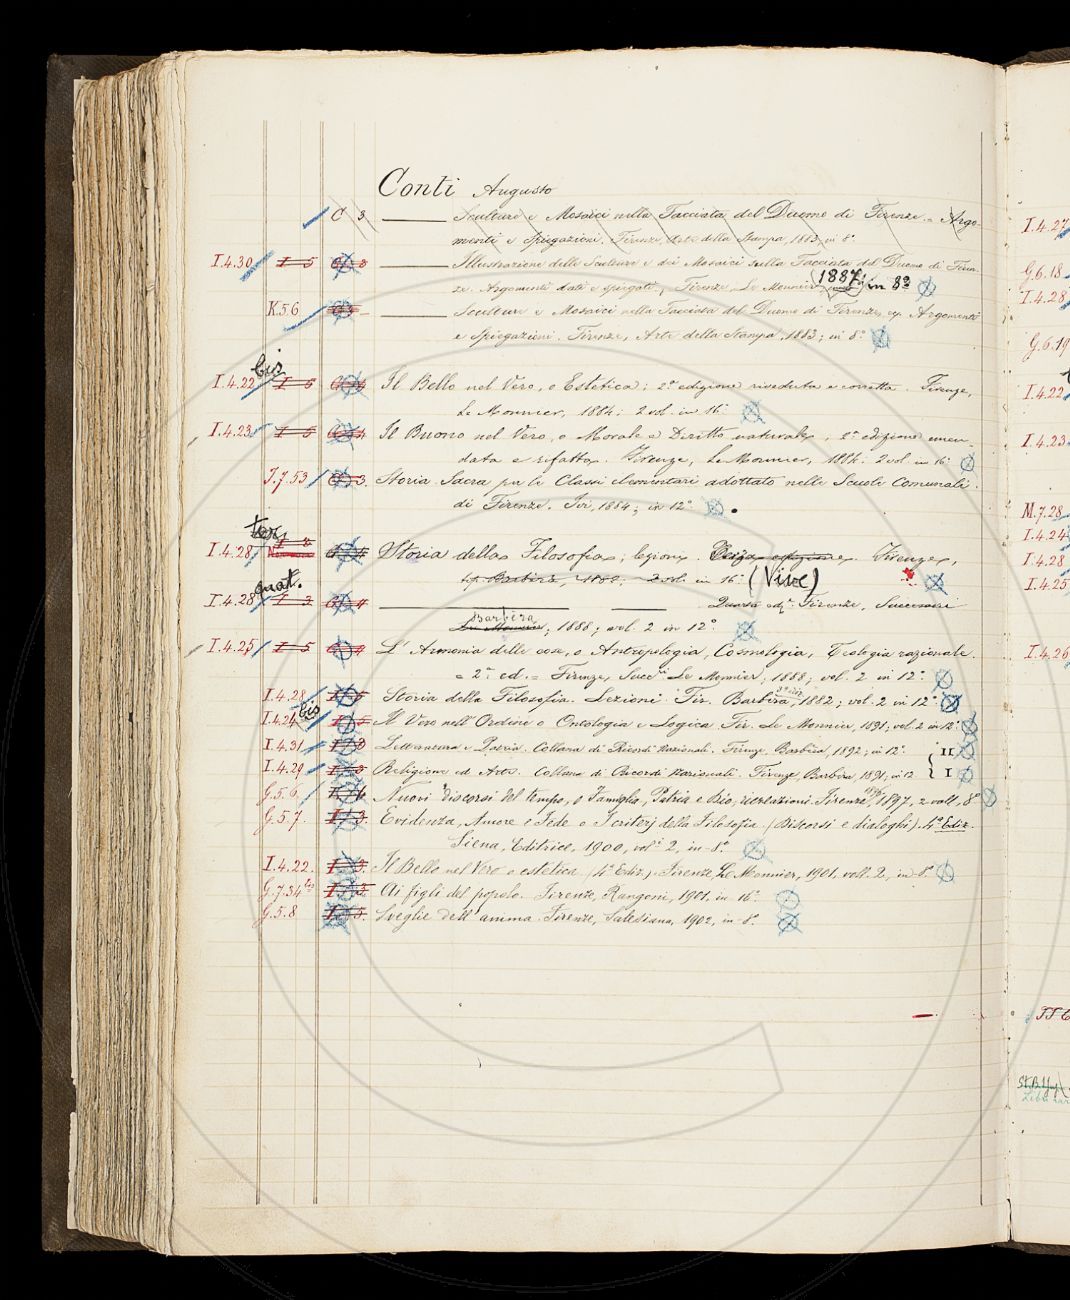 Conti Augusto
C 3 Sculture e Mosaici nella Facciata del Duomo di Firenze = Argo-
menti e Spiegazioni, Firenze, Arte della Stampa, 1883, in 8°.
I.4.30 I 5 Illustrazione delle Sculture e dei Mosaici sulla Facciata del Duomo di Firen-
ze. Argomenti dati e spiegati, Firenze Le Monnier 1887, in 8°
K.5.6 Sculture e Mosaici nella Facciata del Duomo di Firenze, Argomenti
e Spiegazioni. Firenze, Arte della Stampa, 1883; in 8°
bis
I.4.22 I 5 Il Bello nel Vero, o Estetica; 2ª edizione riveduta e corretta. Firenze,
Le Monnier, 1884; 2 vol. in 16°
I.4.23 I 5 Il Buono nel Vero, o Morale e Diritto naturale, 2ª edizione emen-
data e rifatta. Firenze, Le Monnier, 1884. 2 vol. in 16°
I.7.53 3. Storia Sacra per le Classi elementari adottato nelle Scuole Comunali
di Firenze. Ivi, 1884; in 12°
ter
I.4.28 Storia della Filosofia; lezioni. Terza edizione Firenze,
Barbèra, in 16° (Vive)
quat.
I.4.28 I 3 Quarta edⁿᵉ. Firenze, Successori
Barbèra
Le Monnier; 1888; vol. 2 in 12°.
I.4.25 I 5 L' Armonia delle cose, o Antropologia, Cosmologia, Teologia razionale.
= 2ª ed. = Firenze, Succⁱ Le Monnier; 1888; vol. 2 in 12°
I.4.28 Storia della Filosofia. Lezioni. Fir. Barbèra, 1882; vol. 2 in 12°
bis
I.4.24 Il Vero nell'Ordine o Ontologia e Logica Fir. Le Monnier, 1891; vol. 2 in 12°.
I.4.31 Letteratura e Patria. Collana di Ricordi Nazionali. Firenze, Barbèra, 1892; in 12°. II
I.4.29 Religione ed Arte. Collana di Ricordi Nazionali. Firenze, Barbèra, 1891, in 12. I
G.5.6 Nuovi Discorsi del tempo, o Famiglia, Patria e Dio, ricreazioni. Firenze, 1897, 2 voll, 8°
G.5.7. Evidenza, Amore e Fede o I criterj della Filosofia. (Discorsi e dialoghi). 4ª Ediz.
Siena, Editrice, 1900, volⁱ 2, in-8°
I.4.22. Il Bello nel Vero o estetica (4ª Ediz.) Firenze Le Monnier, 1901. voll. 2, in-8°
G.7.34 ter Ai figli del popolo. Firenze, Rangoni, 1901. in 16°
G.5.8 Sveglie dell'anima. Firenze, Salesiana, 1902, in-8°.
I.4.27
G.6.18
I.4.28
G.6.19
I.4.22
I.4.23
M.7.28
I.4.24
I.4.28
I.4.25
I.4.26